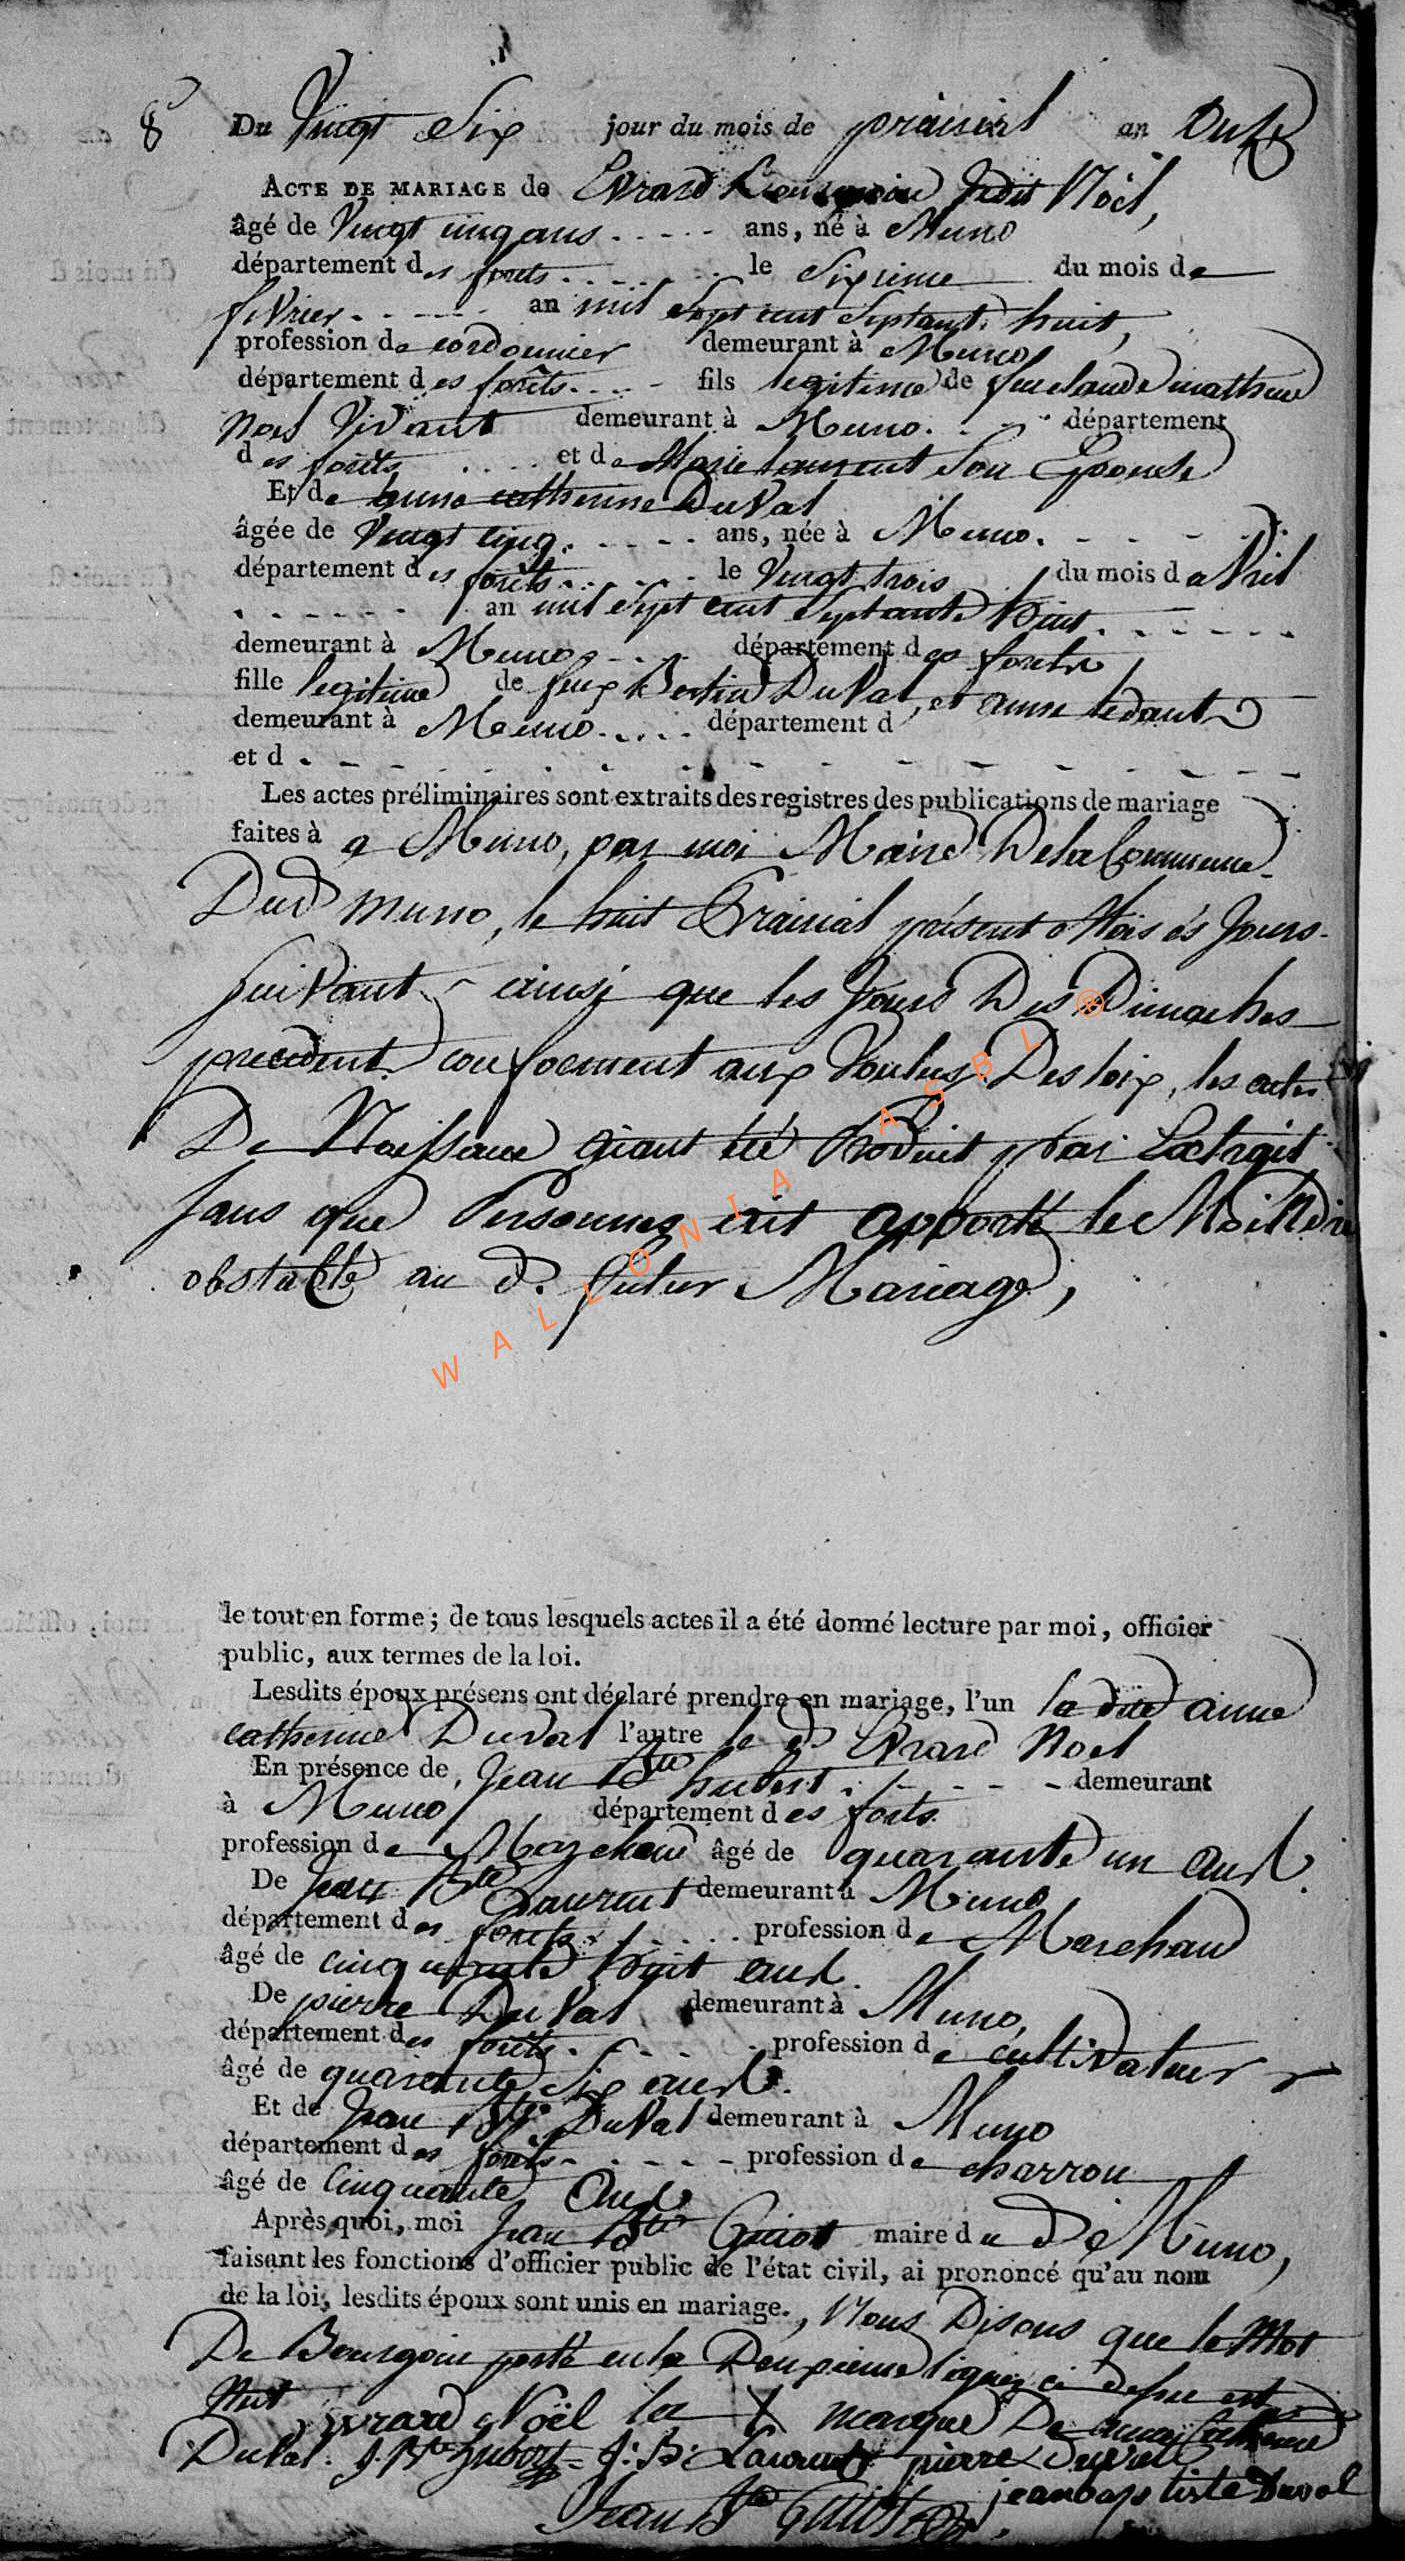 8e Du Vingt Six jour du mois de prairial an Onze
ACTE DE MARIAGE de Evrard Noël,
âgé de Vingt cinq ans ..... ans, né à Muno
département des forets ...... le Sixieme du mois de
fevrier ...... an mil Sept cent Septante huit,
profession de cordonnier demeurant à Muno
département des forêts .... fils legitime de feu claude mathieu
Noel Vivant demeurant à Muno. . . département
des forêts .... et de Marie laurent Son Epouse
Et de anne catherine DuVal
âgée de Vingt cinq. .... ans, née à Muno. ....
département des forêts ...... le Vingt trois du mois d aVril
...... an mil Sept cent Septante huit. ......
demeurant à Muno .... département des forets
fille legitime de feux Bertin DuVal, et anne
demeurant à Muno ..... département d
et d . - - - - - - - - - -
Les actes préliminaires sont extraits des registres des publications de mariage
faites à a Muno, par moi Maire De la Commune
Dud Muno, le huit Prairial présent Mois es Jours
suivant ainsi que les Jours Des Dimanches
precedent conforment aux Voulus Des loix, les actes
De Naissance aiant été Produit par Extrait
sans que Personnes ait apporté le Moindre
obstacle au d. futur Mariage,
le tout en forme ; de tous lesquels actes il a été donné lecture par moi, officier
public, aux termes de la loi.
Lesdits époux présens ont déclaré prendre en mariage, l'un la dite anne
catherine Duval l'autre le d Evrard Noel
En présence de Jean Bte hubert .... demeurant
à Muno département des forts
profession de âgé de quarante un ans.
De Jean Bte Laurent demeurant à Muno
département des forets ..... profession de Marchand
âgé de cinquante huit ans.
De pierre DuVal demeurant à Muno,
département des forêts .... profession de cultivateur
âgé de quarante Six ans.
Et de Jean Bte DuVal demeurant à Muno
département des forêts ..... profession de charron
âgé de Cinquante Ans
Après quoi, moi Jean Bte Guiot maire du d Muno,
faisant les fonctions d'officier public de l'état civil, ai prononcé qu'au nom
de la loi, lesdits époux sont unis en mariage., Nous Disons que le Mot
De Bourgoin porté en la Deuxieme ligne ci dessu est
Nul evrard Noël la X marque De anne Catherine
DuVal. J. Bte hubert J: B: Laurent pierre duval
jean baptiste Duval
Jean Bte Guiot
WALLONIA ASBL ®